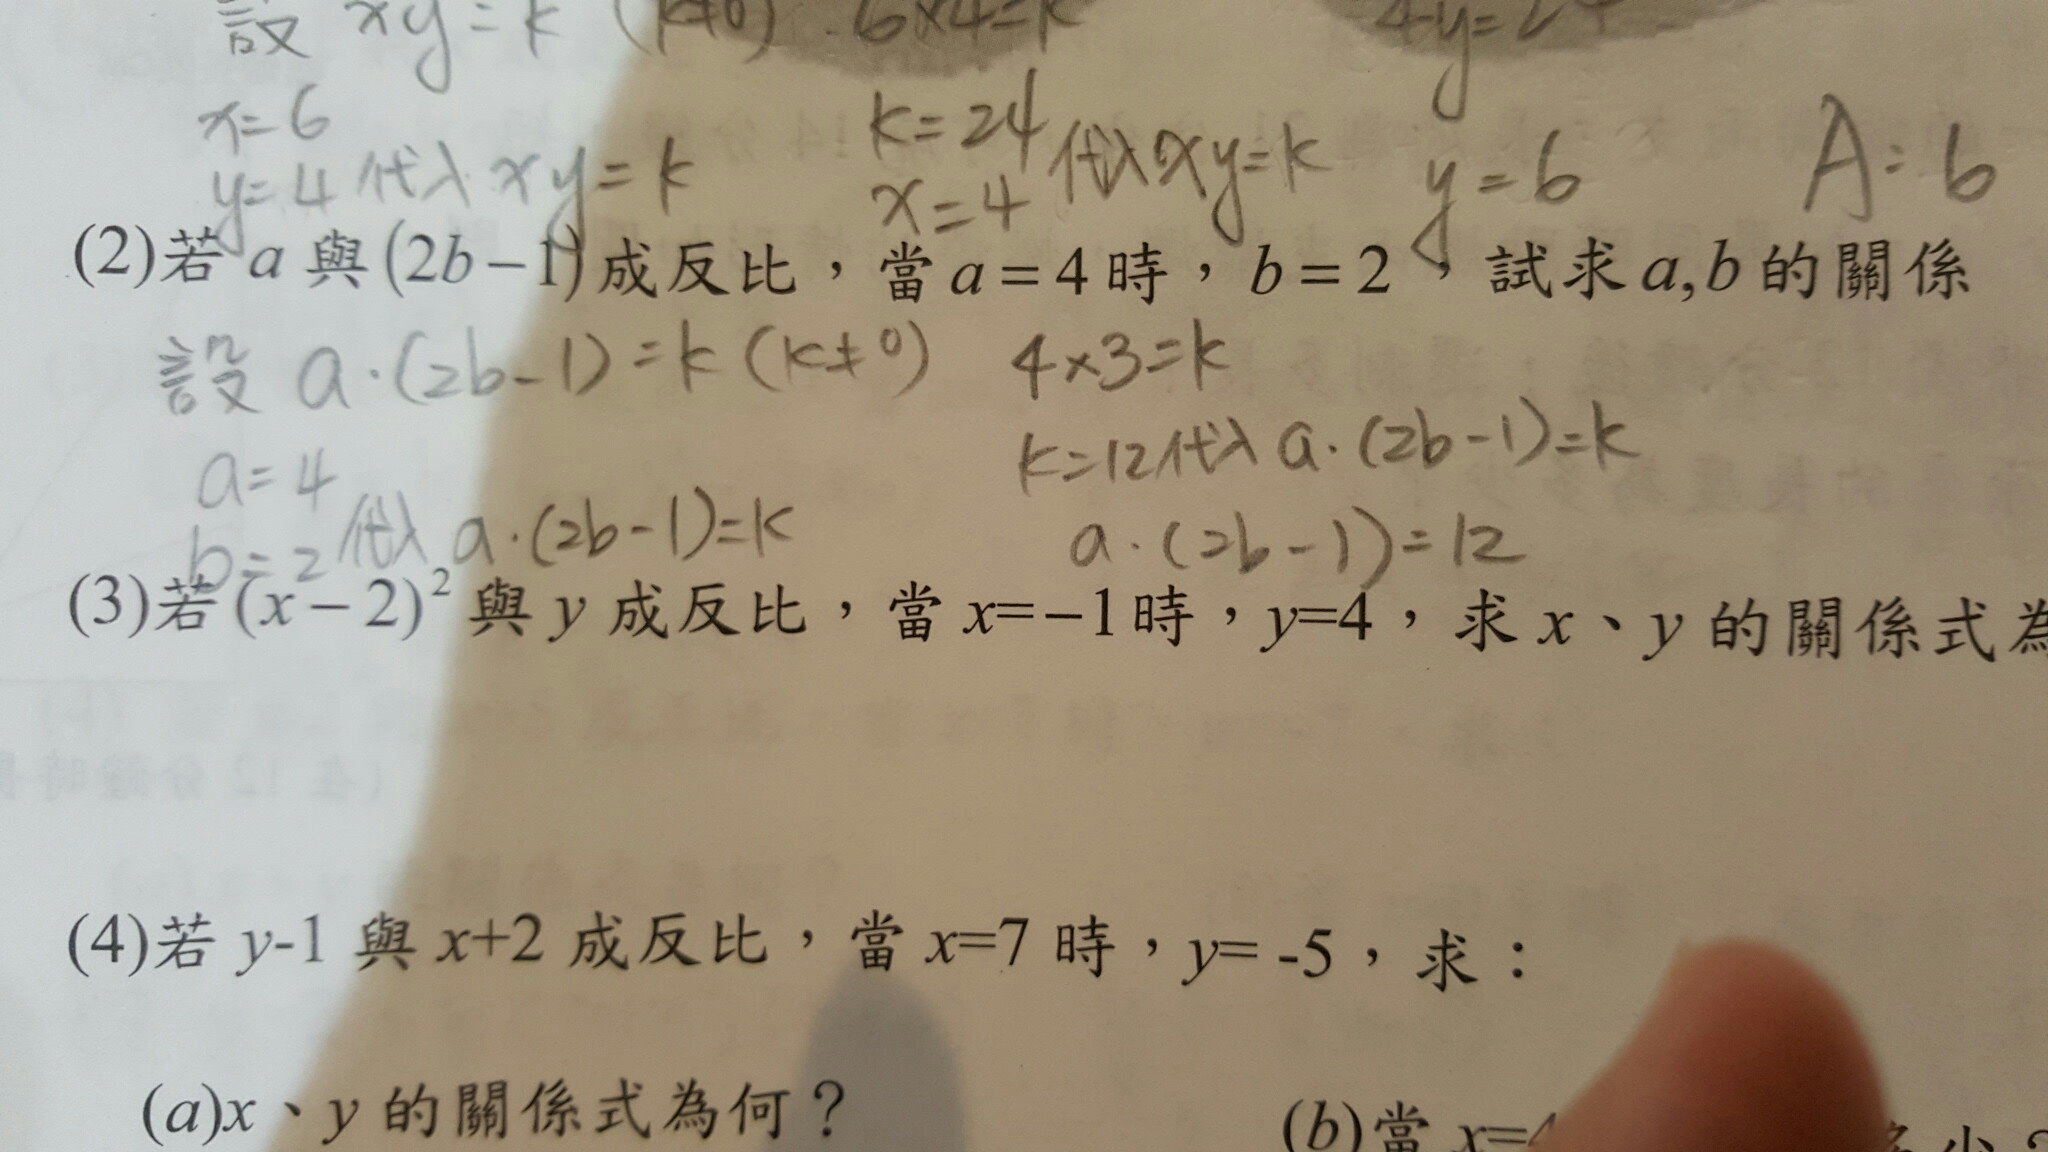 設 xy=k (k≠0) 6×4=k 4y=24
x=6 k=24
y=4 代入 xy=k x=4 代入 xy=k y=6 A:6
(2)若 a 與(2b−1)成反比，當 a=4 時，b=2，試求 a,b 的關係
設 a·(2b-1)=k (k≠0) 4×3=k
a=4 k=12代入 a·(2b-1)=k
b=2 代入 a·(2b-1)=k a·(2b-1)=12
(3)若 (x−2)² 與 y 成反比，當 x=−1 時，y=4，求 x、y 的關係式為
(4)若 y-1 與 x+2 成反比，當 x=7 時，y= -5，求：
(a)x、y 的關係式為何？ (b)當 x=4 多少？